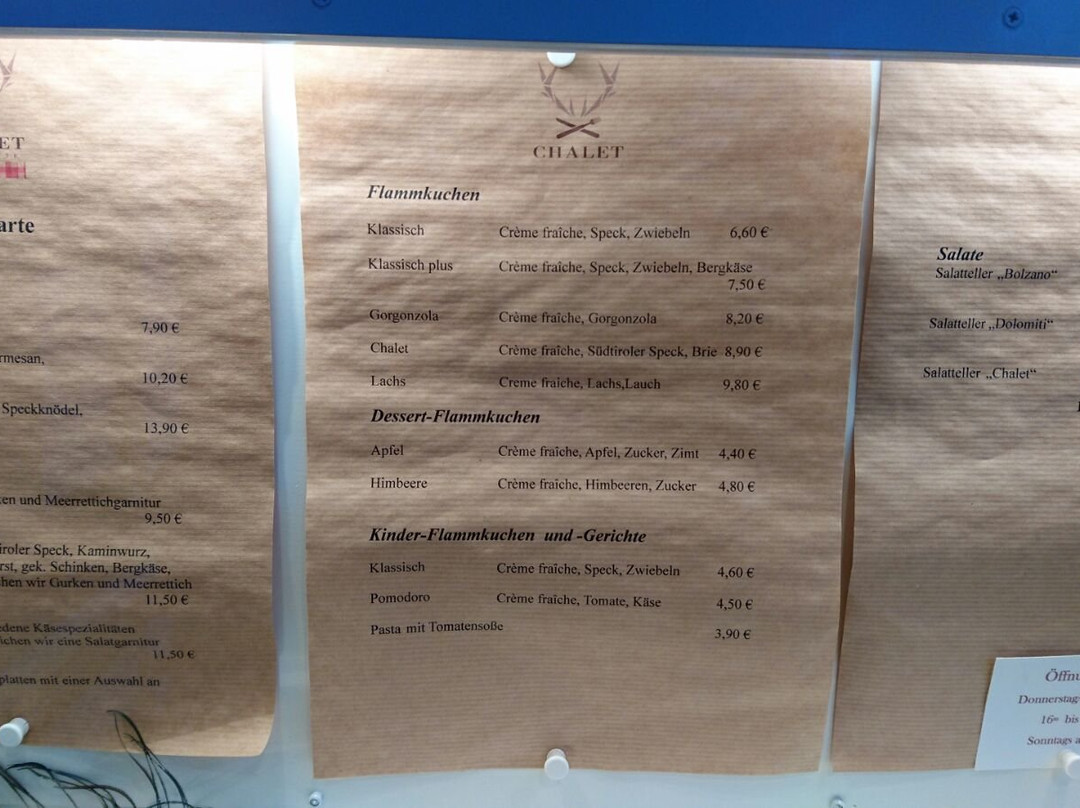 ET
arte
7,90 €
rmesan,
10,20 €
Speckknödel,
13,90 €
en und Meerrettichgarnitur
9,50 €
iroler Speck, Kaminwurz,
rst, gek. Schinken, Bergkäse,
chen wir Gurken und Meerrettich
11,50 €
edene Käsespezialitäten
ichen wir eine Salatgarnitur
11,50 €
platten mit einer Auswahl an
CHALET
Flammkuchen
Klassisch Crème fraîche, Speck, Zwiebeln 6,60 €
Klassisch plus Crème fraîche, Speck, Zwiebeln, Bergkäse
7,50 €
Gorgonzola Crème fraîche, Gorgonzola 8,20 €
Chalet Crème fraîche, Südtiroler Speck, Brie 8,90 €
Lachs Creme fraîche, Lachs,Lauch 9,80 €
Dessert-Flammkuchen
Apfel Crème fraîche, Apfel, Zucker, Zimt 4,40 €
Himbeere Crème fraîche, Himbeeren, Zucker 4,80 €
Kinder-Flammkuchen und -Gerichte
Klassisch Crème fraîche, Speck, Zwiebeln 4,60 €
Pomodoro Crème fraîche, Tomate, Käse 4,50 €
Pasta mit Tomatensoße 3,90 €
Salate
Salatteller „Bolzano“
Salatteller „Dolomiti“
Salatteller „Chalet“
Öffnu
Donnerstag
16°° bis
Sonntags a